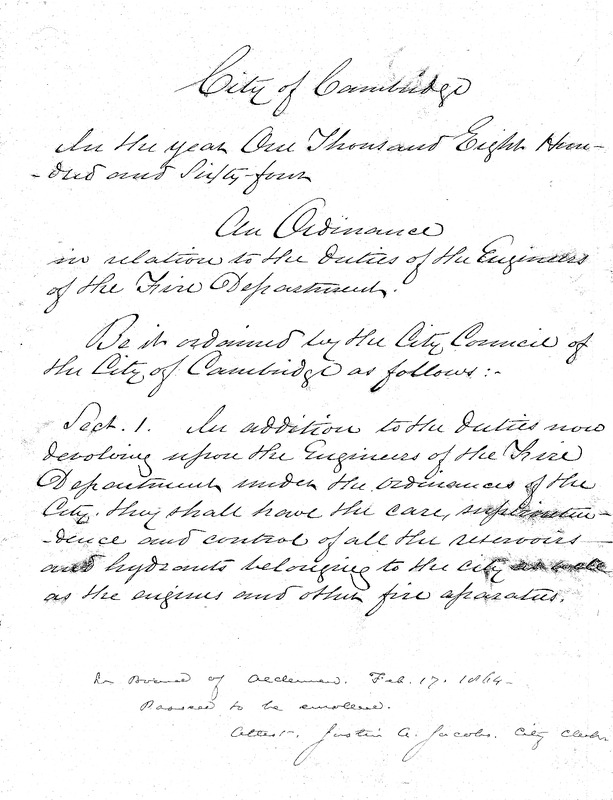 City of Cambridge
In the year One Thousand Eight Hun-
-dred and Sixty-four
An Ordinance
in relation to the duties of the Engineers
of the Fire Department.
Be it ordained by the City Council of
the City of Cambridge as follows:-
Sect. 1. In addition to the duties now
devolving upon the Engineers of the Fire
Department under the ordinances of the
City, they shall have the care, superinten-
-dence and control of all the reservoirs
and hydrants belonging to the city as well
as the engines and other fire aparatus.
In Board of Aldermen. Feb. 17. 1864.
Passed to be enrolled.
Attest. Justin A. Jacobs. City Clerk